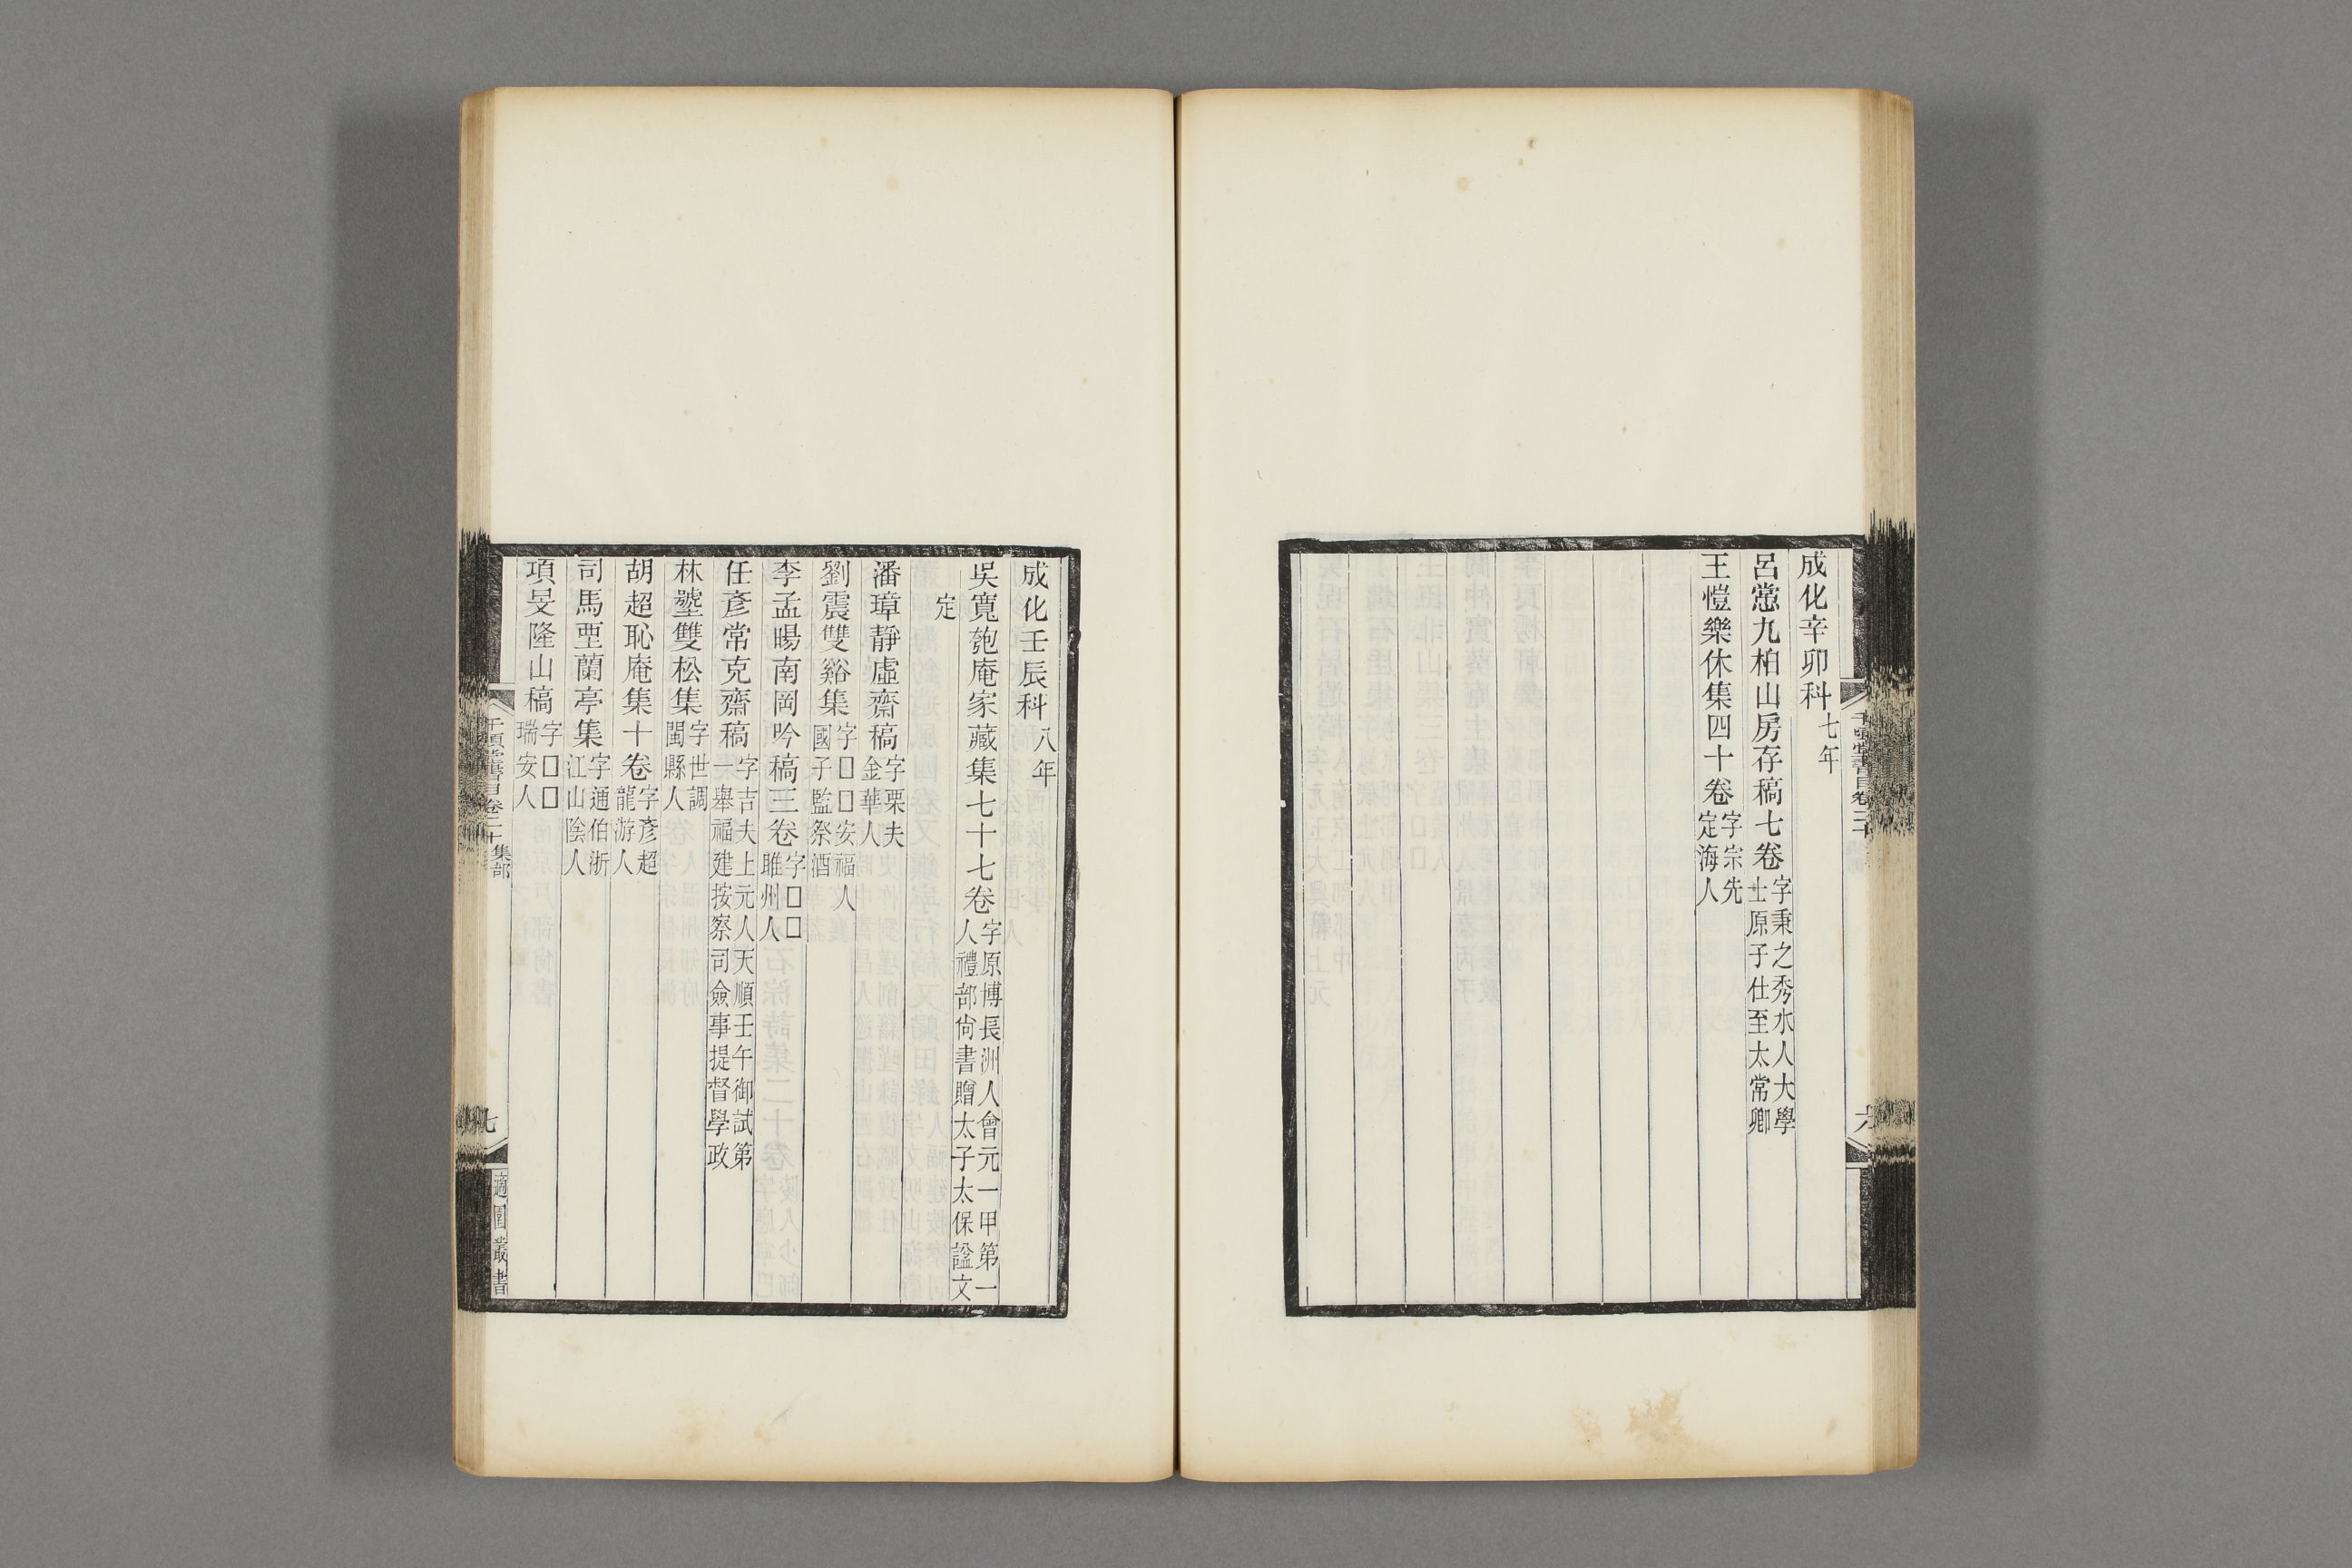 成化辛卯科七年
呂㦂九柏山房存稿七卷字秉之秀水人大學
士原子仕至太常卿
王愷樂休集四十卷字宗先
定海人
千頃堂書目卷二十
六
成化壬辰科八年
吳寬匏庵家藏集七十七卷字原博長洲人會元一甲第一
人禮部尙書贈太子太保諡文
定
潘璋靜虛齋稿字栗夫
金華人
劉震雙谿集字□□安福人
國子監祭酒
李孟暘南岡吟稿三卷字□□
雎州人
任彥常克齋稿字吉夫上元人天順壬午御試第
一舉福建按察司僉事提督學政
林壂雙松集字世調
閩縣人
胡超恥庵集十卷字彥超
龍游人
司馬垔蘭亭集字通伯浙
江山陰人
項旻隆山稿字□□
瑞安人
千頃堂書目卷二十集部
七
適園叢書